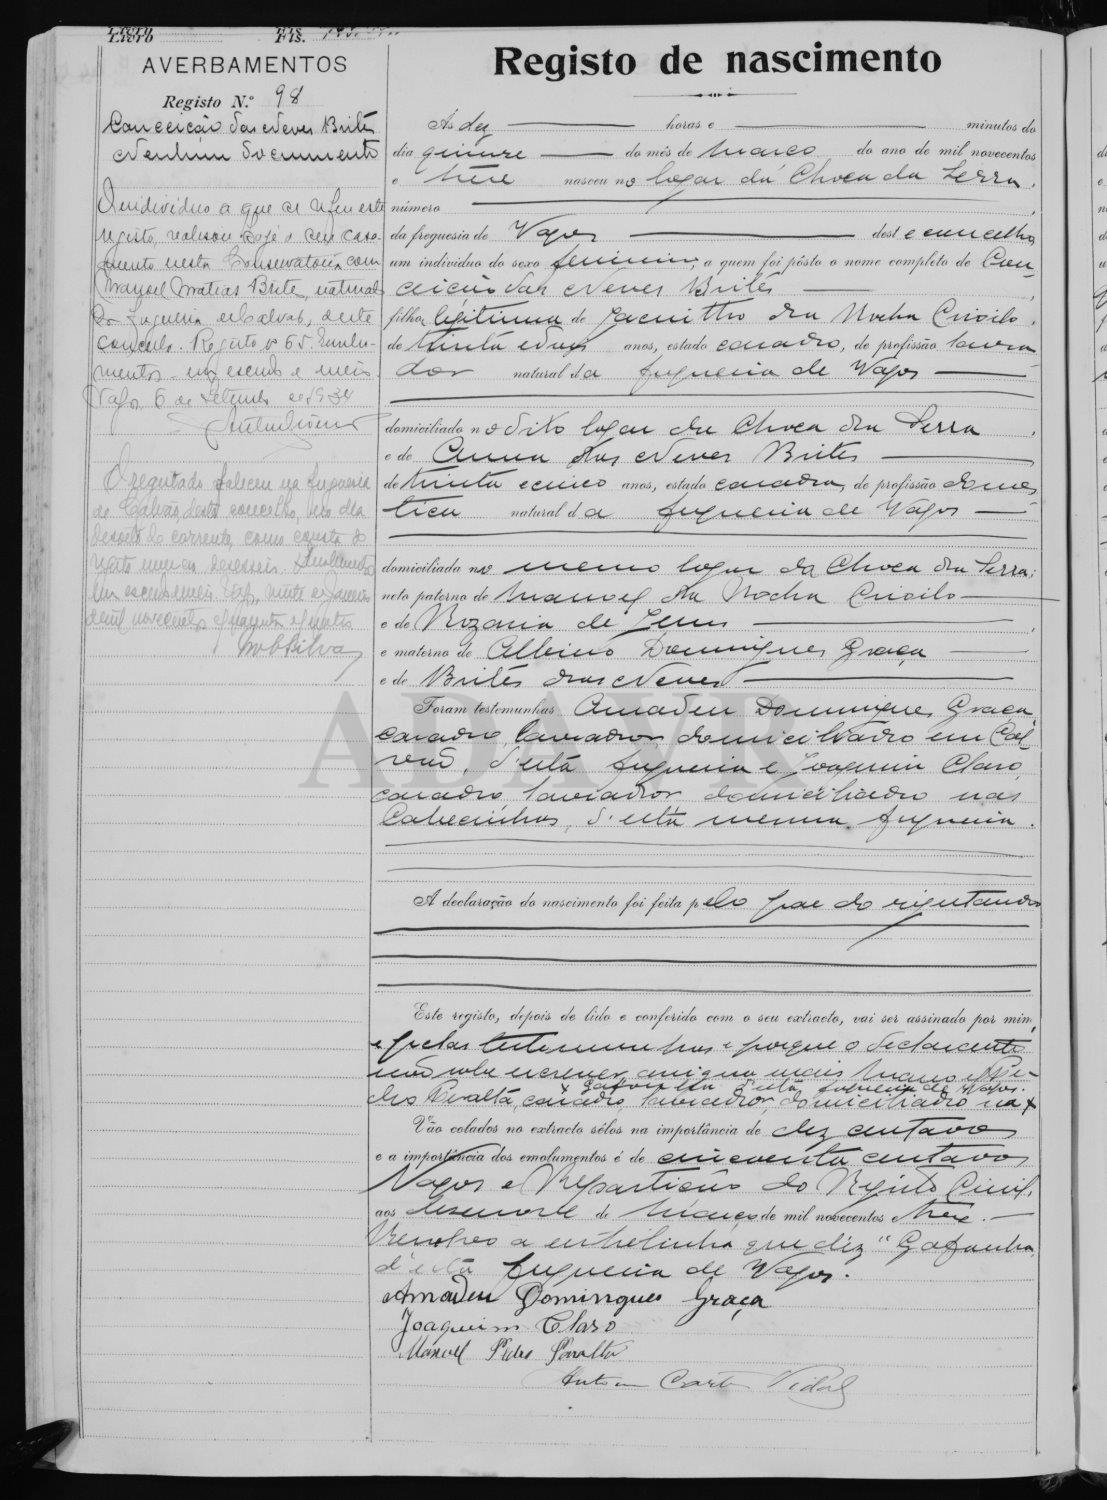 Livro Fls.
AVERBAMENTOS
Registo N.º 98
Conceição das Neves Brités
Nenhum documento
O individuo a que se refere este
registo, realisou hoje o seu casa-
mento nesta Conservatoria com
Manuel Matias Brites, natural
da freguesia de Calvão, deste
concelho. Registo nº 65. Emolu-
mentos - um escudo e meio.
Vagos, 6 de Setembro de 1934
O registado faleceu na freguesia
de Calvão, deste concelho, no dia
dezoito do corrente, como consta do
registo numero dezasseis. Emolumentos
um escudo e meio. Vagos, vinte e Janeiro
de mil novecentos e quarenta e quatro
Registo de nascimento
Ás dez horas e minutos do
dia quinze do mês de Março do ano de mil novecentos
e treze nasceu no logar da Choca da Serra,
número
da freguesia de Vagos deste concelho
um individuo do sexo feminino, a quem foi pôsto o nome completo de Con-
ceição das Neves Brités
filha legitima de Jacintho da Rocha Crioilo,
de trinta e dois anos, estado casado, de profissão lavra-
dor natural da freguesia de Vagos
domiciliado no dito logar da Choca da Serra,
e de Anna das Neves Brites
de trinta e cinco anos, estado casada, de profissão domes-
tica natural da freguesia de Vagos
domiciliada no mesmo logar da Choca da Serra;
neto paterno de Manoel da Rocha Crioilo
e de Rozaria de Jesus
e materno de Albino Domingues Graça
e de Brités das Neves
Foram testemunhas Amadeu Domingues Graça,
casado, lavrador, domiciliado em Cal-
vão, d'esta freguesia e Joaquim Claro,
casado, lavrador domiciliado nas
Cabecinhas, d'esta mesma freguesia.
A declaração do nascimento foi feita pelo pae do registando
Este registo, depois de lido e conferido com o seu extracto, vai ser assinado por mim,
e pelas testemunhas e porque o declarante
não sabe escrever assigna mais Manoel Pe-
x Gafanha d'esta freguesia de Vagos.
dro Ruralta, casado, lavrador, domiciliado na x
Vão colados no extracto sêlos na importância de dez centavos
e a importância dos emolumentos é de cincoenta centavos
Vagos e Repartição do Registo Civil,
aos desenove de Março de mil novecentos e treze.
Resalvo a entrelinha que diz "Gafanha,
d'esta freguesia de Vagos.
Amadeu Domingues Graça
Joaquim Claro
Manoel Pedro
Antonio Vidal
ADAVR